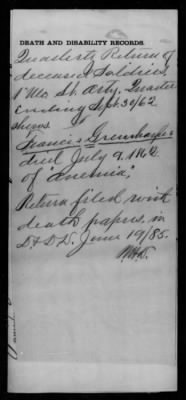 DEATH AND DISABILITY RECORDS.
Quarterly Return of
deceased Soldiers,
1" Mo Lt. Arty. Quarter
ending Sept 30/62
shows
Francis
died July 9. 1862
of "anemia,"
Return filed with
death papers, in
D. & D. D. June 19/85.